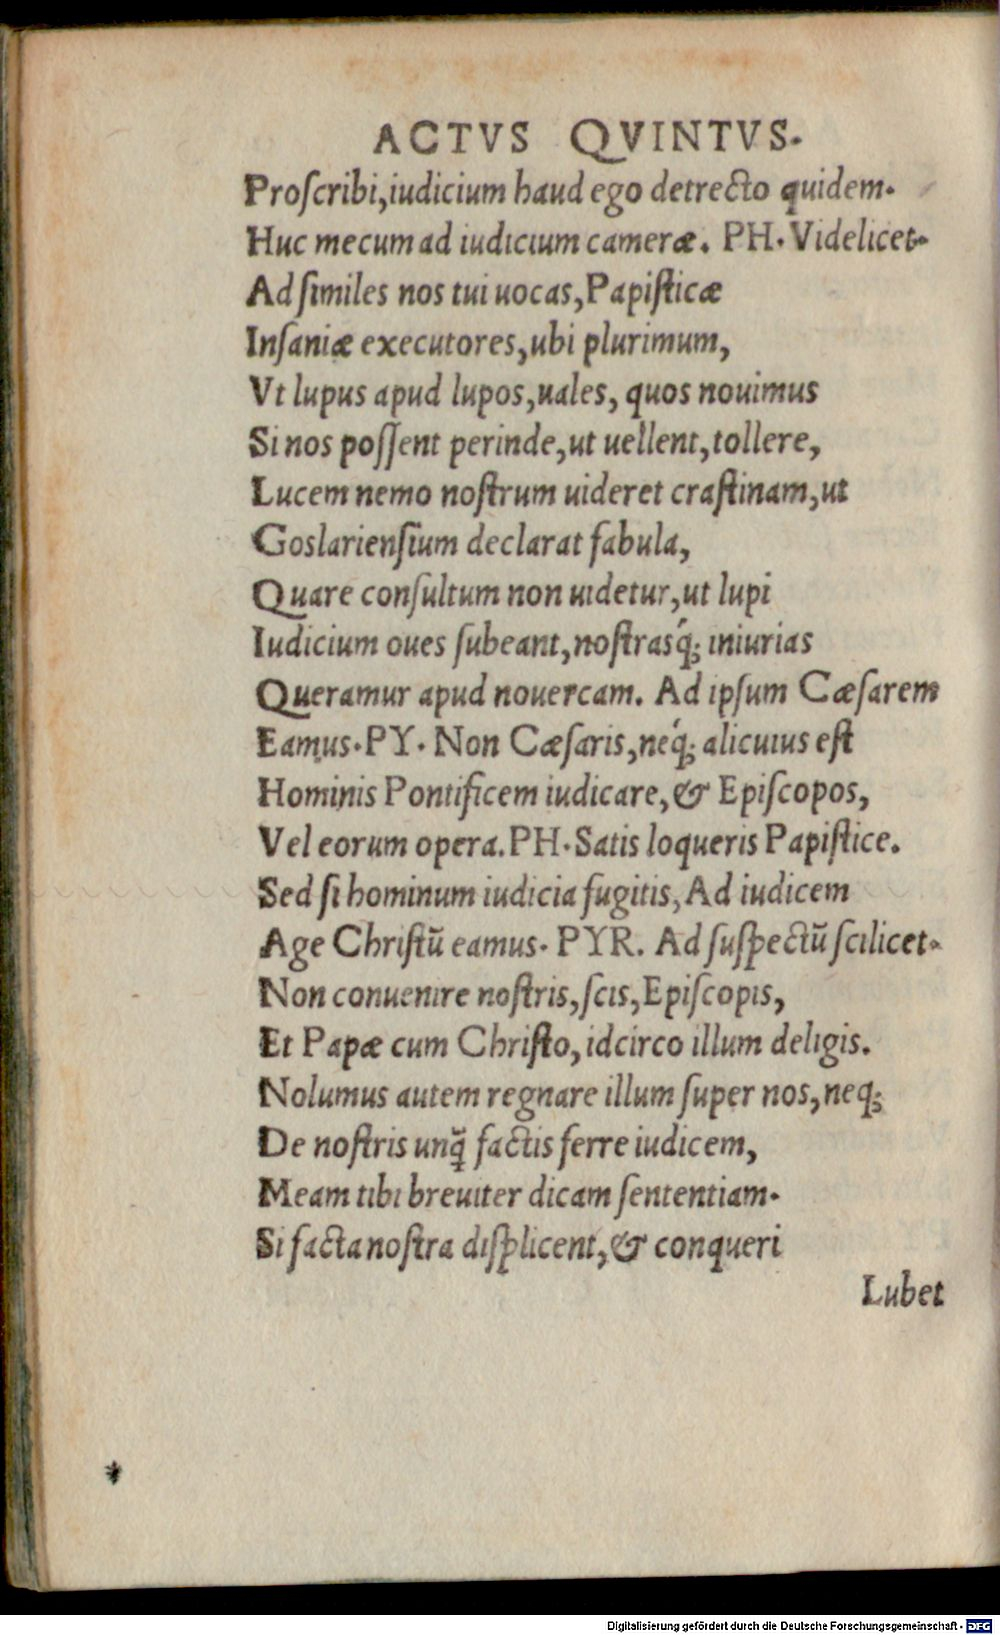 ACTVS QVINTVS.
Proſcribi,iudicium haud ego detrecto quidem.
Huc mecum ad iudicium cameræ. PH. Videlicet.
Ad ſimiles nos tui uocas,Papiſticæ
Inſaniæ executores,ubi plurimum,
Vt lupus apud lupos,uales, quos nouimus
Si nos poſſent perinde,ut uellent,tollere,
Lucem nemo noſtrum uideret craſtinam,ut
Goslarienſium declarat fabula,
Quare conſultum non uidetur,ut lupi
Iudicium oues ſubeant,noſtrasq́; iniurias
Queramur apud nouercam. Ad ipſum Cæſarem
Eamus. PY. Non Cæſaris,neq́; alicuius eſt
Hominis Pontificem iudicare,& Epiſcopos,
Vel eorum opera. PH. Satis loqueris Papiſtice.
Sed ſi hominum iudicia fugitis,Ad iudicem
Age Chriſtū eamus. PYR. Ad ſuſpectū ſcilicet.
Non conuenire noſtris,ſcis,Epiſcopis,
Et Papæ cum Chriſto,idcirco illum deligis.
Nolumus autem regnare illum ſuper nos,neq;
De noſtris unq̃ factis ferre iudicem,
Meam tibi breuiter dicam ſententiam.
Si facta noſtra diſplicent,& conqueri
Lubet
Digitalisierung gefördert durch die Deutsche Forschungsgemeinschaft - DFG